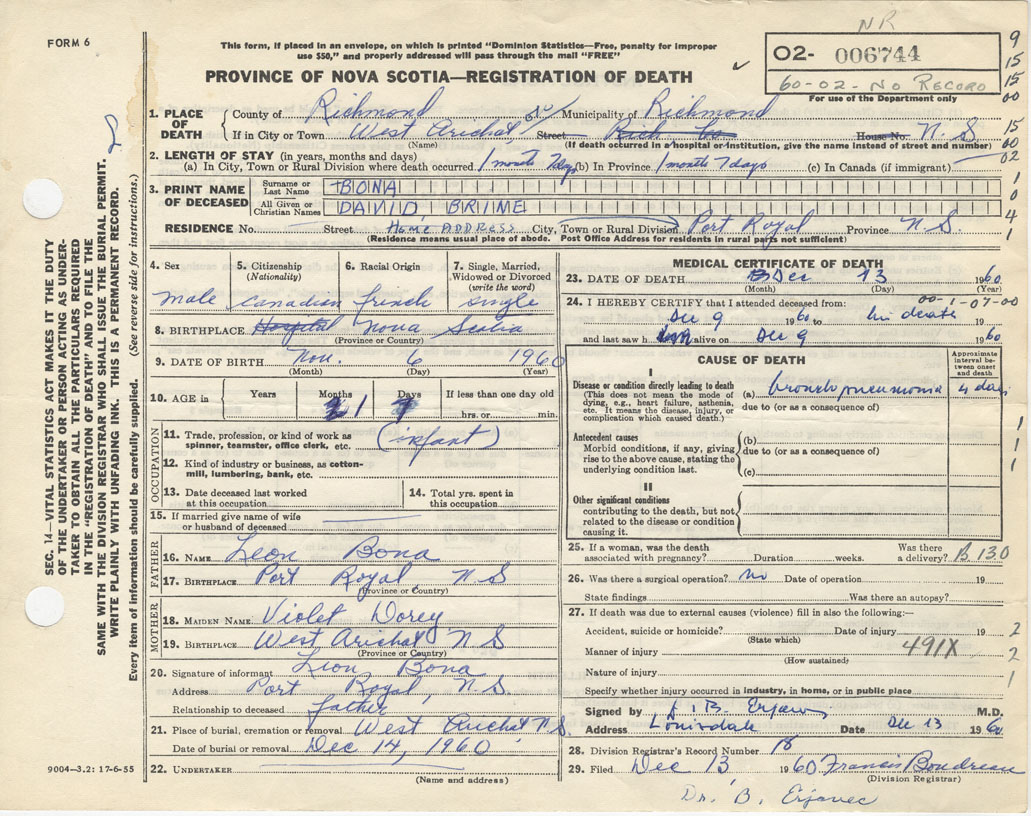 NR
FORM 6
This form, if placed in an envelope, on which is printed "Dominion Statistics—Free, penalty for improper
use $50," and properly addressed will pass through the mail "FREE"
02- 006744
60-02-No Record
For use of the Department only
PROVINCE OF NOVA SCOTIA—REGISTRATION OF DEATH
9
15
15
00
15
60
02
1
0
4
1
1. PLACE OF DEATH County of Richmond Municipality of Richmond
If in City or Town West Arichat Street Rich Co House No. N. S.
(Name) (If death occurred in a hospital or institution, give the name instead of street and number)
2. LENGTH OF STAY (in years, months and days)
(a) In City, Town or Rural Division where death occurred 1 month 7 days (b) In Province 1 month 7 days (c) In Canada (if immigrant)
3. PRINT NAME OF DECEASED Surname or Last Name BONA
All Given or Christian Names DAVID, BRIME
RESIDENCE No. Street Home Address City, Town or Rural Division Port Royal Province N. S.
(Residence means usual place of abode. Post Office Address for residents in rural parts not sufficient)
4. Sex 5. Citizenship (Nationality) 6. Racial Origin 7. Single, Married, Widowed or Divorced (write the word)
male Canadian french single
8. BIRTHPLACE Hospital Nova Scotia
(Province or Country)
9. DATE OF BIRTH Nov. 6 1960
(Month) (Day) (Year)
10. AGE in Years Months 1 Days 7 If less than one day old
hrs. or min.
OCCUPATION
11. Trade, profession, or kind of work as spinner, teamster, office clerk, etc. (infant)
12. Kind of industry or business, as cotton-mill, lumbering, bank, etc.
13. Date deceased last worked at this occupation
14. Total yrs. spent in this occupation
15. If married give name of wife or husband of deceased
FATHER
16. NAME Leon Bona
17. BIRTHPLACE Port Royal, N S
(Province or Country)
MOTHER
18. MAIDEN NAME Violet Dorey
19. BIRTHPLACE West Arichat N S
(Province or Country)
20. Signature of informant Leon Bona
Address Port Royal, N. S.
Relationship to deceased father
21. Place of burial, cremation or removal West Arichat N S
Date of burial or removal Dec 14, 1960
22. UNDERTAKER
(Name and address)
MEDICAL CERTIFICATE OF DEATH
23. DATE OF DEATH Dec 13 1960
(Month) (Day) (Year)
24. I HEREBY CERTIFY that I attended deceased from: 00-1-07-00
Dec 9 1960 to his death 19
and last saw h alive on Dec 9 1960
CAUSE OF DEATH
Approximate interval between onset and death
I
Disease or condition directly leading to death
(This does not mean the mode of dying, e.g., heart failure, asthenia, etc. It means the disease, injury, or complication which caused death.)
(a) bronchopneumonia 4 days
due to (or as a consequence of)
Antecedent causes
Morbid conditions, if any, giving rise to the above cause, stating the underlying condition last.
(b)
due to (or as a consequence of)
(c)
1
1
1
II
Other significant conditions
contributing to the death, but not related to the disease or condition causing it.
25. If a woman, was the death associated with pregnancy? Duration weeks. Was there a delivery? B. 130
26. Was there a surgical operation? no Date of operation 19
State findings Was there an autopsy?
27. If death was due to external causes (violence) fill in also the following:—
Accident, suicide or homicide? Date of injury 19 2
(State which)
Manner of injury 491X 2
(How sustained)
Nature of injury 1
Specify whether injury occurred in industry, in home, or in public place
Signed by B. Erjavec M.D.
Address Louisdale Date Dec 13 1960
28. Division Registrar's Record Number 18
29. Filed Dec 13 1960 Francis Boudreau
(Division Registrar)
Dr. B. Erjavec
9004—3.2: 17-6-55
SEC. 14—VITAL STATISTICS ACT MAKES IT THE DUTY
OF THE UNDERTAKER OR PERSON ACTING AS UNDER-
TAKER TO OBTAIN ALL THE PARTICULARS REQUIRED
IN THE "REGISTRATION OF DEATH" AND TO FILE THE
SAME WITH THE DIVISION REGISTRAR WHO SHALL ISSUE THE BURIAL PERMIT.
WRITE PLAINLY WITH UNFADING INK. THIS IS A PERMANENT RECORD.
Every item of information should be carefully supplied. (See reverse side for instructions.)